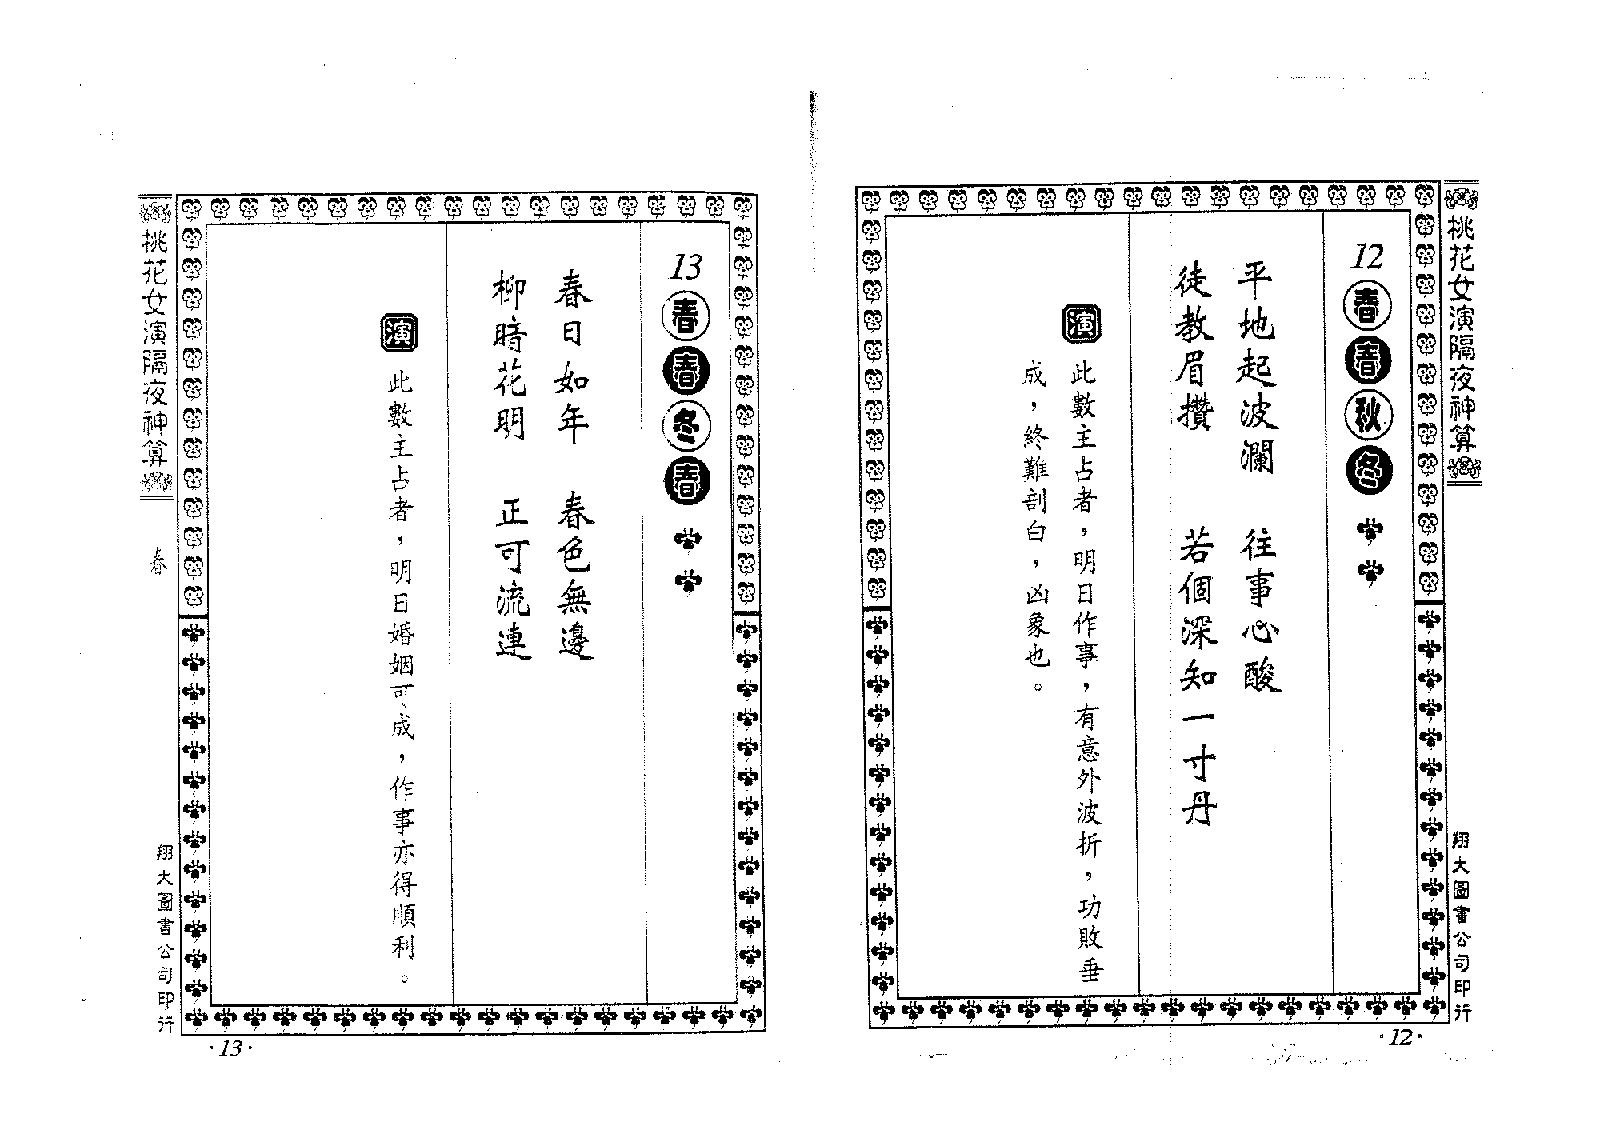 桃花女演隔夜神算
翔大圖書公司印行
12
春春秋冬
平地起波瀾　往事心酸
徒教眉攢　若個深知一寸丹
演
此數主占者，明日作事，有意外波折，功敗垂
成，終難剖白，凶象也。
·12·
13
春春冬春
春日如年　春色無邊
柳暗花明　正可流連
演
此數主占者，明日婚姻可成，作事亦得順利。
桃花女演隔夜神算
春
翔大圖書公司印行
·13·